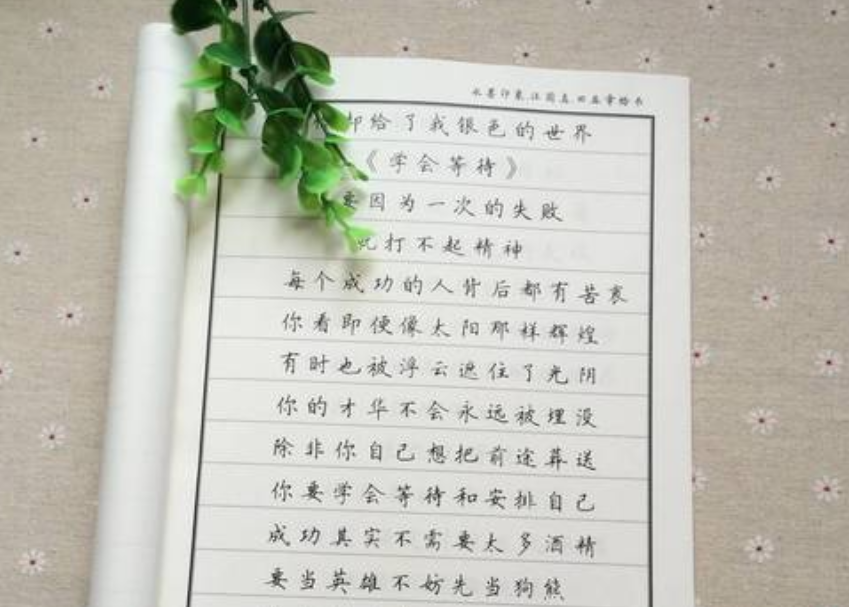 却给了我银色的世界
《学会等待》
要因为一次的失败
打不起精神
每个成功的人背后都有苦衷
你看即便像太阳那样辉煌
有时也被浮云遮住了光阴
你的才华不会永远被埋没
除非你自己想把前途葬送
你要学会等待和安排自己
成功其实不需要太多酒精
要当英雄不妨先当狗熊